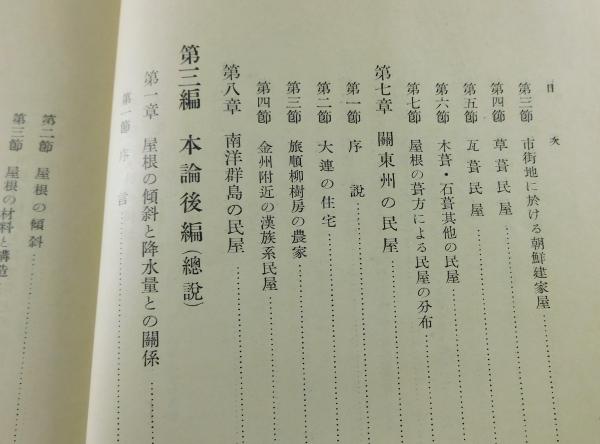 目次
第三節 市街地に於ける朝鮮建家屋
第四節 草葺民屋
第五節 瓦葺民屋
第六節 木葺・石葺其他の民屋
第七節 屋根の葺方による民屋の分布
第七章 關東州の民屋
第一節 序說
第二節 大連の住宅
第三節 旅順柳樹房の農家
第四節 金州附近の漢族系民屋
第八章 南洋群島の民屋
第三編 本論後編(總說)
第一章 屋根の傾斜と降水量との關係
第一節 序言
第二節 屋根の傾斜
第三節 屋根の材料と構造